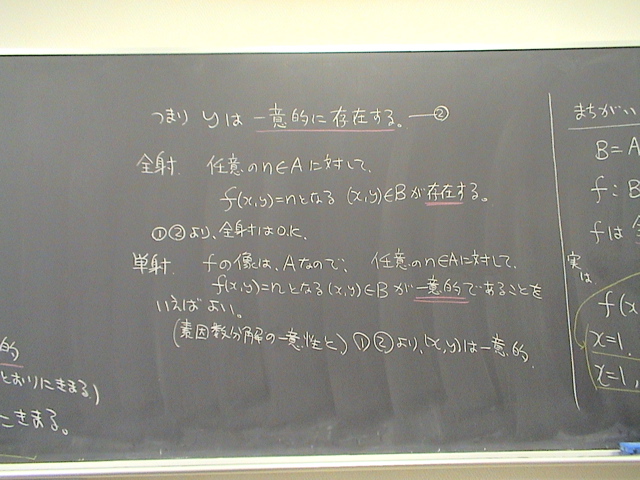 つまり yは 一意的に存在する。―②
全射. 任意のn∈Aに対して、
f(x,y)=nとなる (x,y)∈Bが存在する。
①②より、全射はO.K.
単射. fの像は、Aなので、 任意のn∈Aに対して、
f(x,y)=nとなる(x,y)∈Bが一意的であることを
いえばよい。
(素因数分解の一意性と、) ①②より、(x,y)は一意的.
的
とおりにきまる.)
きまる。
まちがい
B=A
f:B
fは 全
実は
f(x
x=1
x=1,